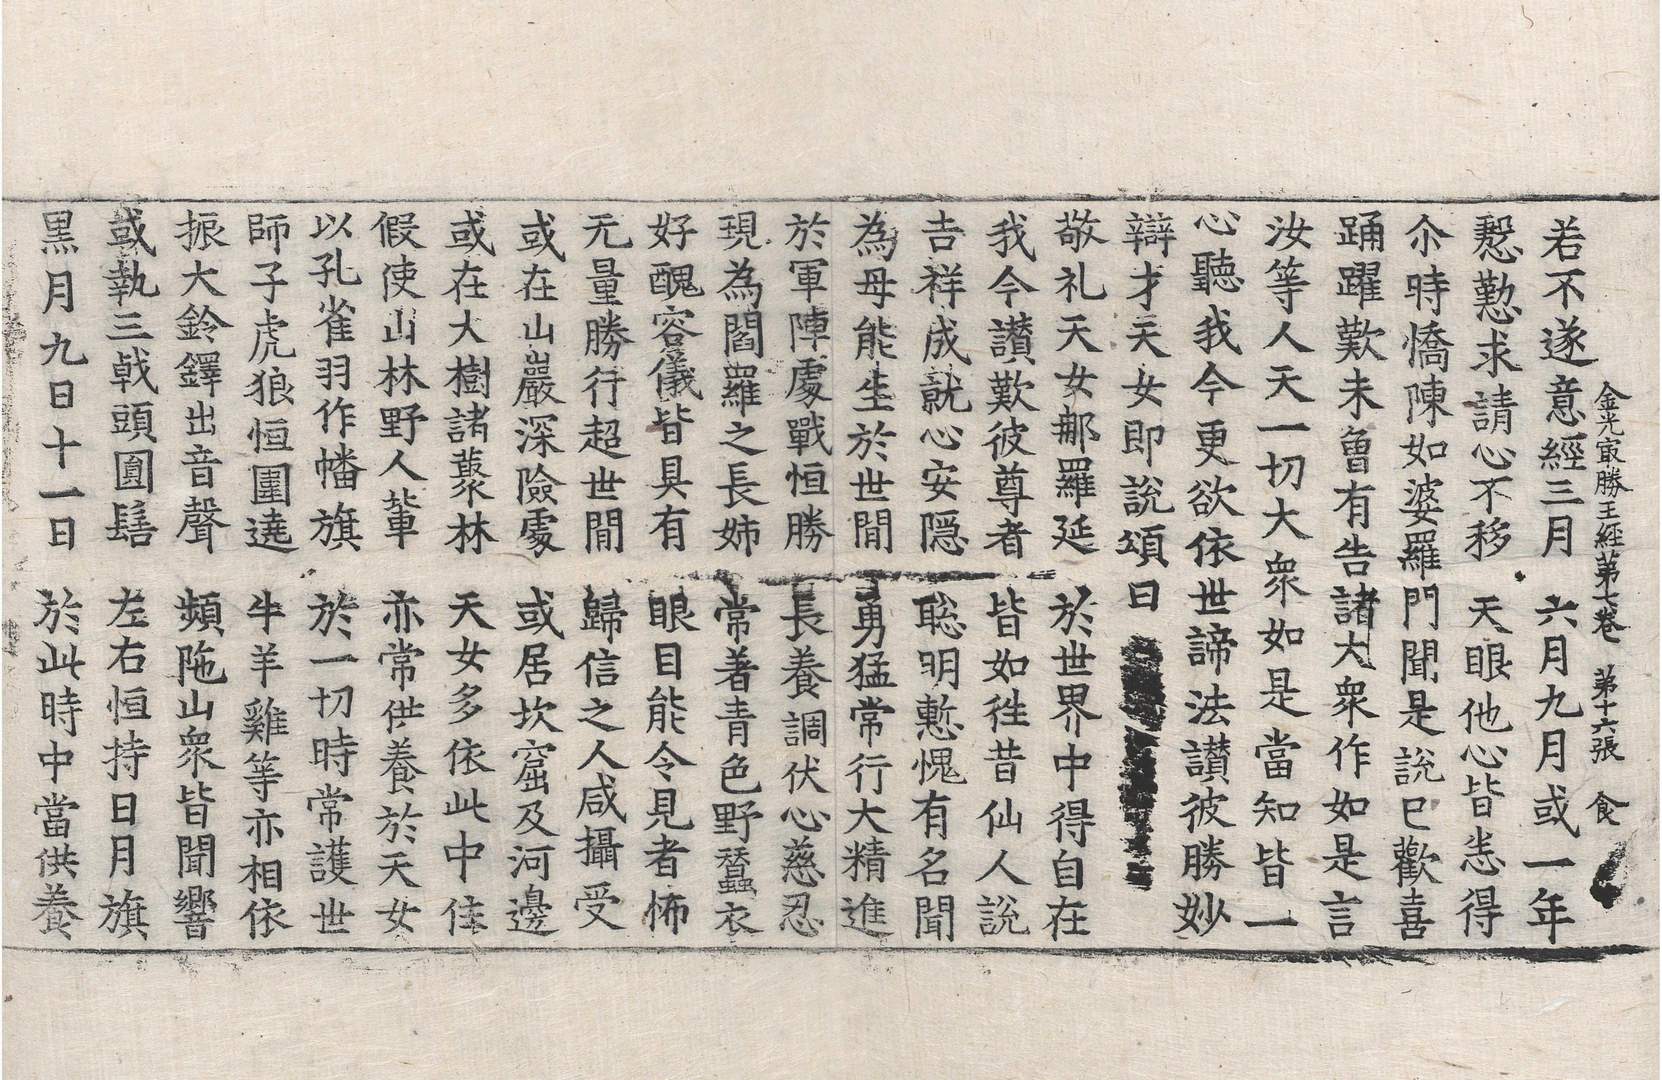 金光最勝王經第七卷 第十六張 食
若不遂意經三月 六月九月或一年
慇懃求請心不移 天眼他心皆悉得
尒時憍陳如婆羅門聞是說已歡喜
踊躍歎未曾有告諸大衆作如是言
汝等人天一切大衆如是當知皆一
心聽我今更欲依世諦法讃彼勝妙
辯才天女即說頌曰
敬礼天女那羅延 於世界中得自在
我今讃歎彼尊者 皆如徃昔仙人說
吉祥成就心安隱 聡明慙愧有名聞
為母能生於世間 勇猛常行大精進
於軍陣處戰恒勝 長養調伏心慈忍
現為閻羅之長姉 常著青色野蠶衣
好醜容儀皆具有 眼目能令見者怖
无量勝行超世間 歸信之人咸攝受
或在山巖深險處 或居坎窟及河邊
或在大樹諸藂林 天女多依此中住
假使山林野人輩 亦常供養於天女
以孔雀羽作幡旗 於一切時常護世
師子虎狼恒圍遶 牛羊雞等亦相依
振大鈴鐸出音聲 頻陁山衆皆聞響
或執三戟頭圓髻 左右恒持日月旗
黒月九日十一日 於此時中當供養